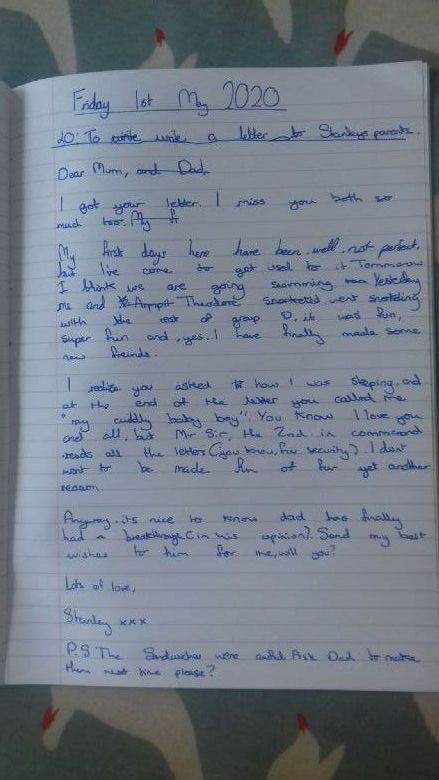 Friday 1st May 2020
LO: To write a letter to Stanleys parents.
Dear Mum, and Dad,
I got your letter. I miss you both so
much too. My f
My first days here have been well, not perfect,
but I've come to get used to it. Tommorow
I think we are going swimming. Yesterday
me and Armpit Theodore went
with the rest of group D, it was fun,
super fun and, yes. I have finally made some
new freinds.
I realize you asked how I was sleping, and
at the end of the letter you called me
"my cuddly baby boy". You know I love you
and all, but Mr Sir, the 2nd in command
reads all the letters (you know, for security). I dont
want to be made fun of for yet another
reason.
Anyway, its nice to know dad has finally
had a breakthrough (in his opinion). Send my best
wishes to him for me, will you?
Lots of love,
Stanley xxx
P.S The Sandwiches were awful. Ask Dad to make
them next time please?